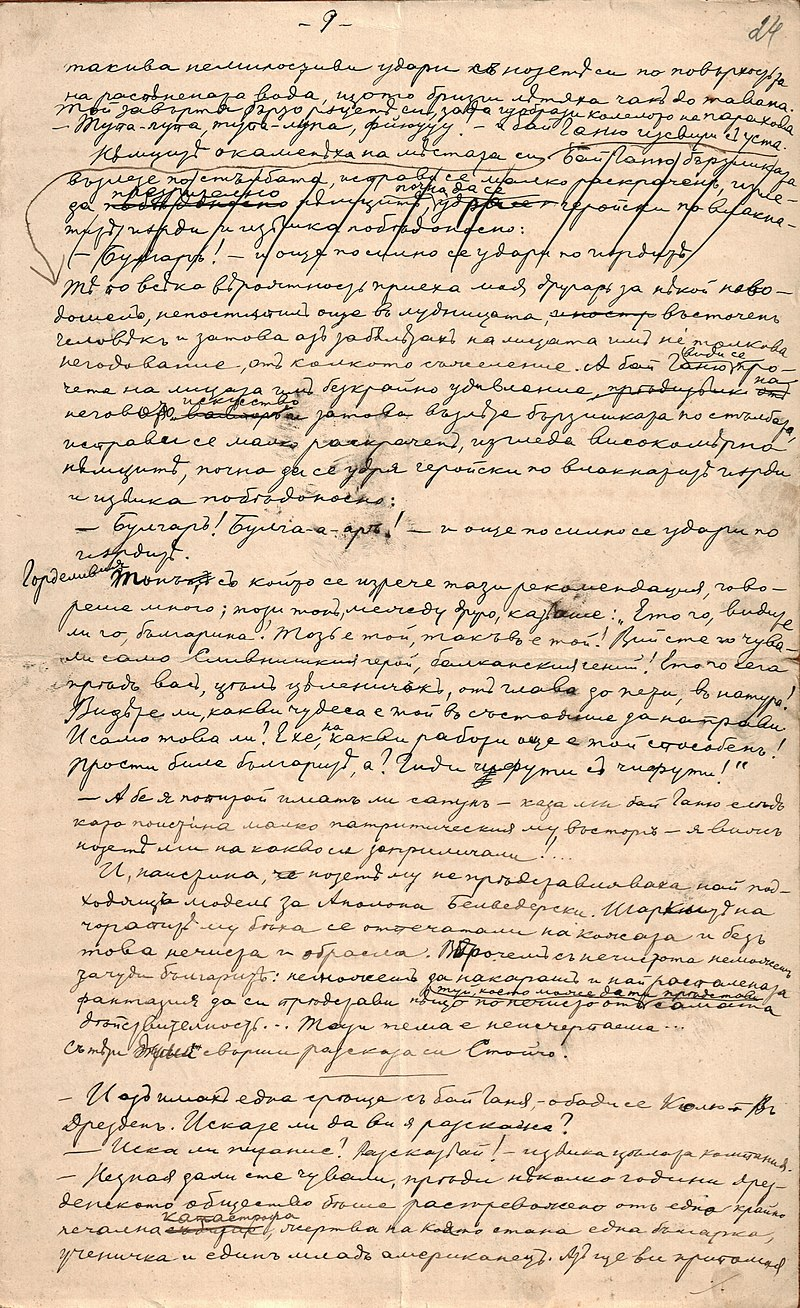 - 9 -
24
такива немилостиви удари съ нозетѣ си по повърхностьта
на растѣпаната вода, щото бризги лѣтяха чакъ до тавана.
Той завъртя бързо рѫцетѣ си, за да изобрази колелото на парахода
– Тупа-лупа, тупа-лупа, фиюууу! – и бай Ганю изсвири съ уста.
Нѣмцитѣ окаменѣха на мѣстата си. Бай Ганю бързишката
възлезе по стълбата, исправи се малко раскраченъ, изгле-
да презрително нѣмцитѣ, почна да се удря геройски по влакна-
титѣ гърди и извика побѣдоносно:
– Булгаръ! – и още по силно се удари по гърдитѣ
Тѣ по всѣка вѣроятность приеха моя другарь за нѣкой наво-
дошелъ, непостъпилъ още въ лудницата, въсточенъ
человѣкъ и затова азъ забѣлѣзахъ на лицата имъ не толкова
негодование, отъ колкото съжеление. А бай Ганю, види се, про-
чете на лицата имъ безкрайно удивление на
неговото искуство и затова възлѣзе бързишката по стълбата,
исправи се малко раскраченъ, изгледа високомѣрно
нѣмцитѣ, почна да се удря геройски по влакнатитѣ гърди
и извика побѣдоносно:
– Булгаръ! Булга-а-аръ! – и още по силно се удари по
гърдитѣ.
Горделивия тонъ, съ който се изрече тази рекомендация, гово-
реше много; този тонъ, между друго, казваше: „Ето го, видите
ли го, българина! Тозъ е той, такъвъ е той! Вий сте го чува-
ли само Сливнишкия герой, балканския гений! Ето го сега
прѣдъ васъ, цѣлъ целеничъкъ, отъ глава до пети, въ натура!
Видите ли, какви чудеса е той въ състояние да направи
И само това ли! Ехе, на какви работи още е той способенъ!
Прости били българитѣ, а? Гиди чифути съ чифути!"
– Абе я попитай иматъ ли сапунъ – каза ми бай Ганю слѣдъ
като поистина малко патриотическия му възторгъ – я вижъ
нозетѣ ми на какво сѫ заприличали!....
И, наистина, нозетѣ му не прѣдставляваха най под-
ходящия моделъ за Аполона Белведерски. Шаркитѣ на
чорапитѣ му бѣха се отпечатали на кожата и безъ
това нечиста и обрасла. Впрочемъ съ нечистота не можешъ
зачуди българитѣ: не можешъ да накарашъ и най распалената
фантазия да си прѣдстави нѣщо по нечисто отъ туй, което може да ти прѣдстави самата
дѣйствителность... Тази тема е неисчерпаема...
свърши рассказа си Стойчо.
– И азъ имахъ една срѣща съ бай Ганя, – обади се Кольо – въ
Дрезденъ. Искате ли да ви я раскажа?
– Иска ли питание! Расказвай! – извика цѣлата компания.
– Незная дали сте чували, прѣди нѣколко години дрез-
денското общество бѣше растревожено отъ една крайно
печална катастрофа, жертва на която стана една българка,
ученичка и единъ младъ американецъ. Азъ ще ви припомня